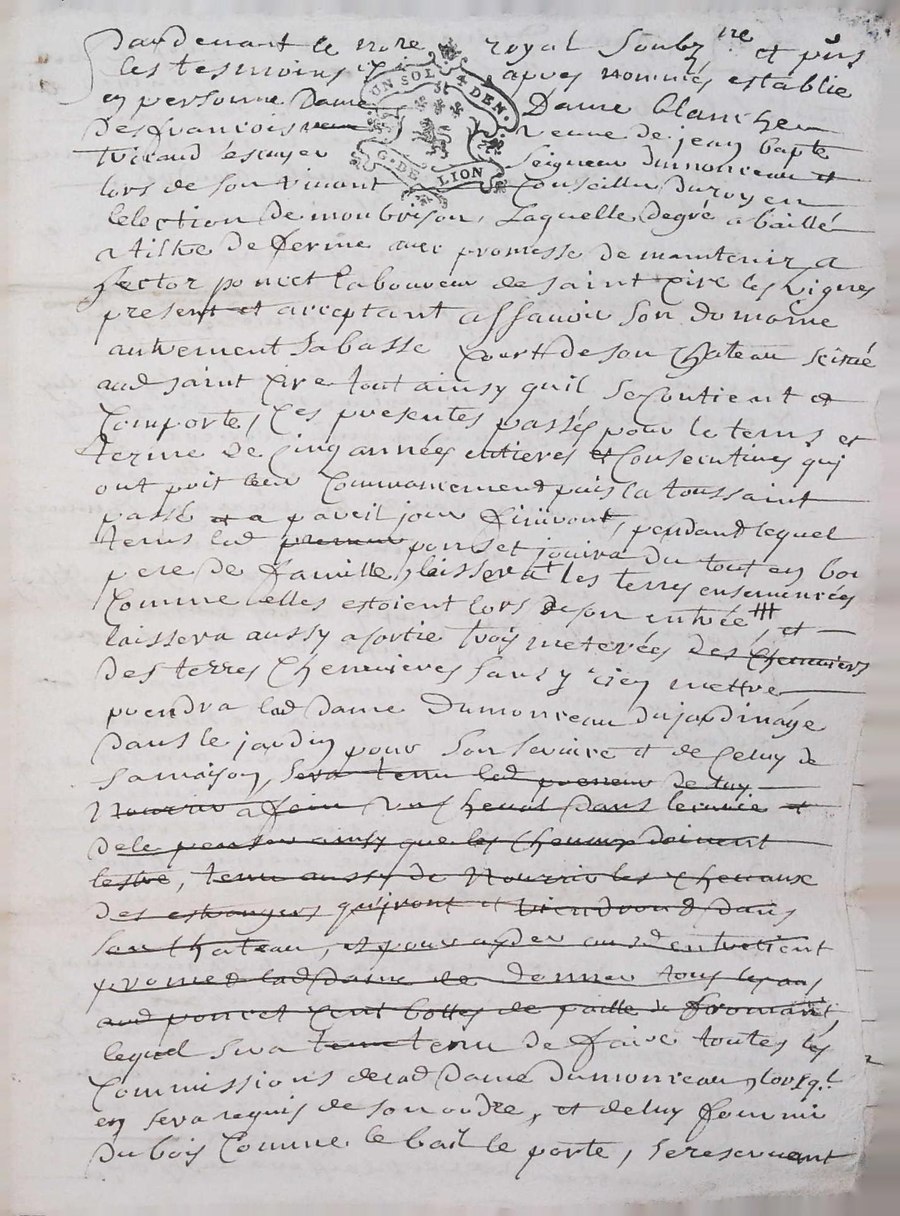 Pardevant le no.re royal Soubz.ne et p.ns
les tesmoins cy apres nommés establie
en personne Dame Dame Blanche
des francois veuve de jean bap.te
Vicaud escuyer Seigneur Dumonceau et
lors de son vivant Conseiller du roy en
lelection de monbrison, Laquelle degré a baillé
a tiltre de ferme avec promesse de maintenir a
hector poncet laboureur de saint Cire les Vignes
present et acceptant assavoir son domaine
autrement sa basse Court de son Chateau scitué
aud saint Cire tout ainsy quil se Contient et
Comporte, Ces presentes passés pour le tems et
terme de Cinq années entieres et Consecutives qui
ont prit leur Commancement puis la toussaint
passé et a pareil jour finiront, pendant lequel
tems led preneur ponset jouira du tout en bon
pere de famille, laissera les terres ensemencées
Comme elles estoient lors de son entrée, et
laissera aussy a sortie trois meterées des Cheneviers
des terres Chenevieres sans y rien mettre
prendra lad Dame Dumonceau du jardinage
dans le jardin pour son service et de Celuy de
sa maison, sera tenu led preneur de luy
Nourrir a foin un Cheval dans lecurie et
de le penser ainsy que les Chevaux doivent
lestre, tenu aussy de Nourrir les Chevaux
des estrangers qui iront et viendront dans
son Chateau, et pour ayder aud entretient
promet lad Dame de donner tous les ans
aud poncet Cent bottes de paille de fromant,
lequel sera tenu tenu de faire toutes les
Commissions de lad Dame Dumonceau, lorsq.l
en sera requis de son ordre, et de luy fournir
du bois Comme le bail le porte, se reservant
UN SOL 4 DEN.
G. DE LION